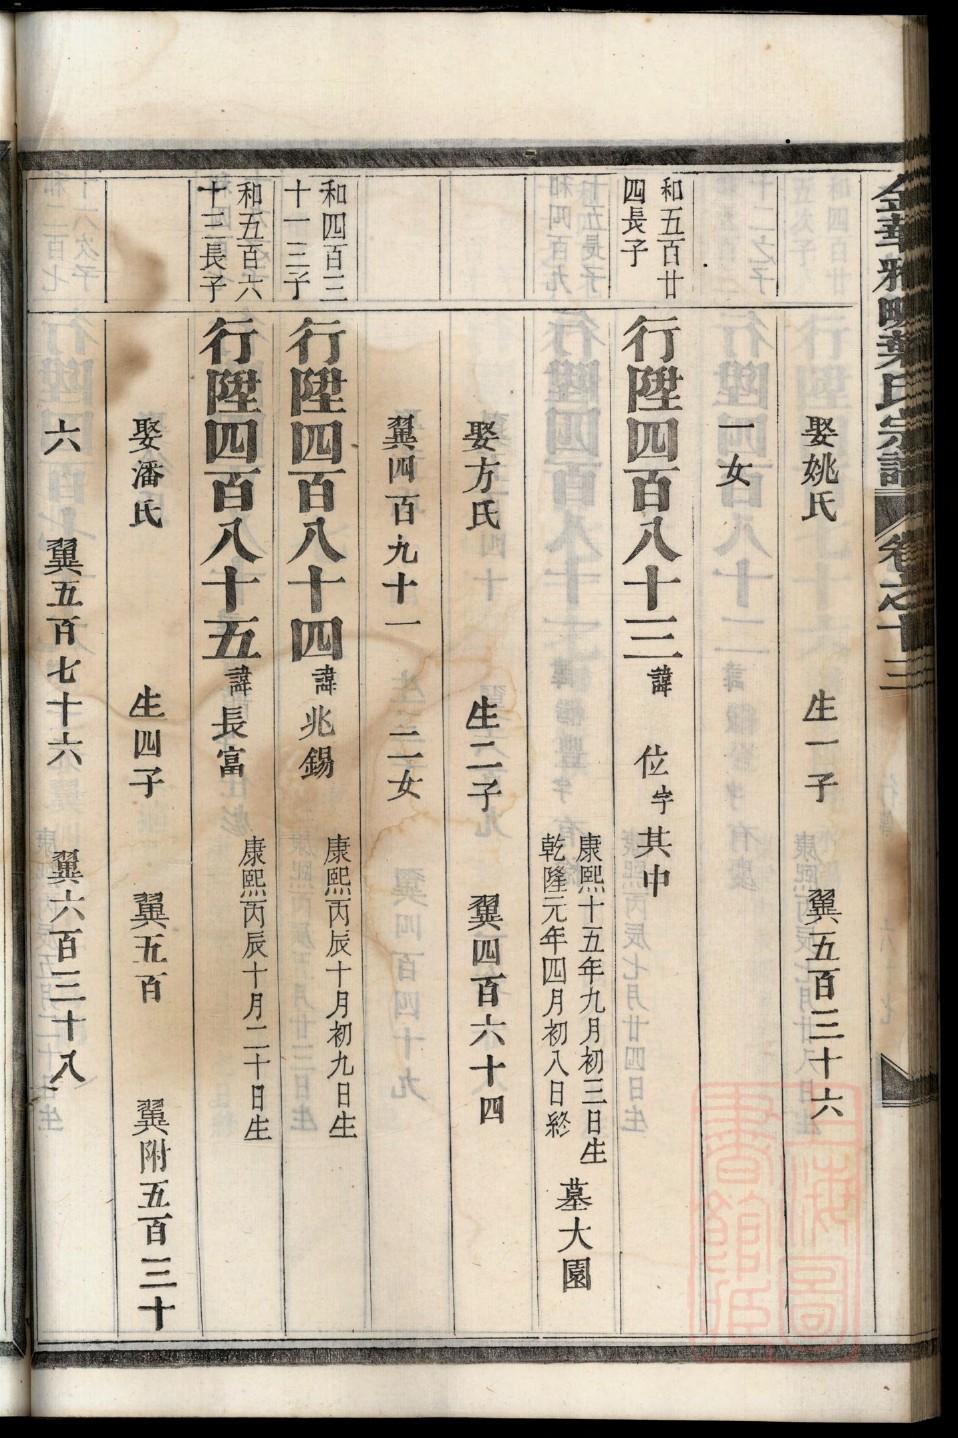 金華雅畈葉氏宗譜 卷之十三
娶姚氏 生一子 翼五百三十六
一女
和五百廿
四長子
行陞四百八十三 諱 位 字 其中
康熙十五年九月初三日生
乾隆元年四月初八日終
墓大園
娶方氏 生二子 翼四百六十四
翼四百九十一 生二女
和四百三
十一三子
行陞四百八十四 諱 兆錫
康熙丙辰十月初九日生
和五百六
十三長子
行陞四百八十五 諱 長富
康熙丙辰十月二十日生
娶潘氏 生四子 翼五百 翼附五百三十
六 翼五百七十六 翼六百三十八
上海圖
書館藏